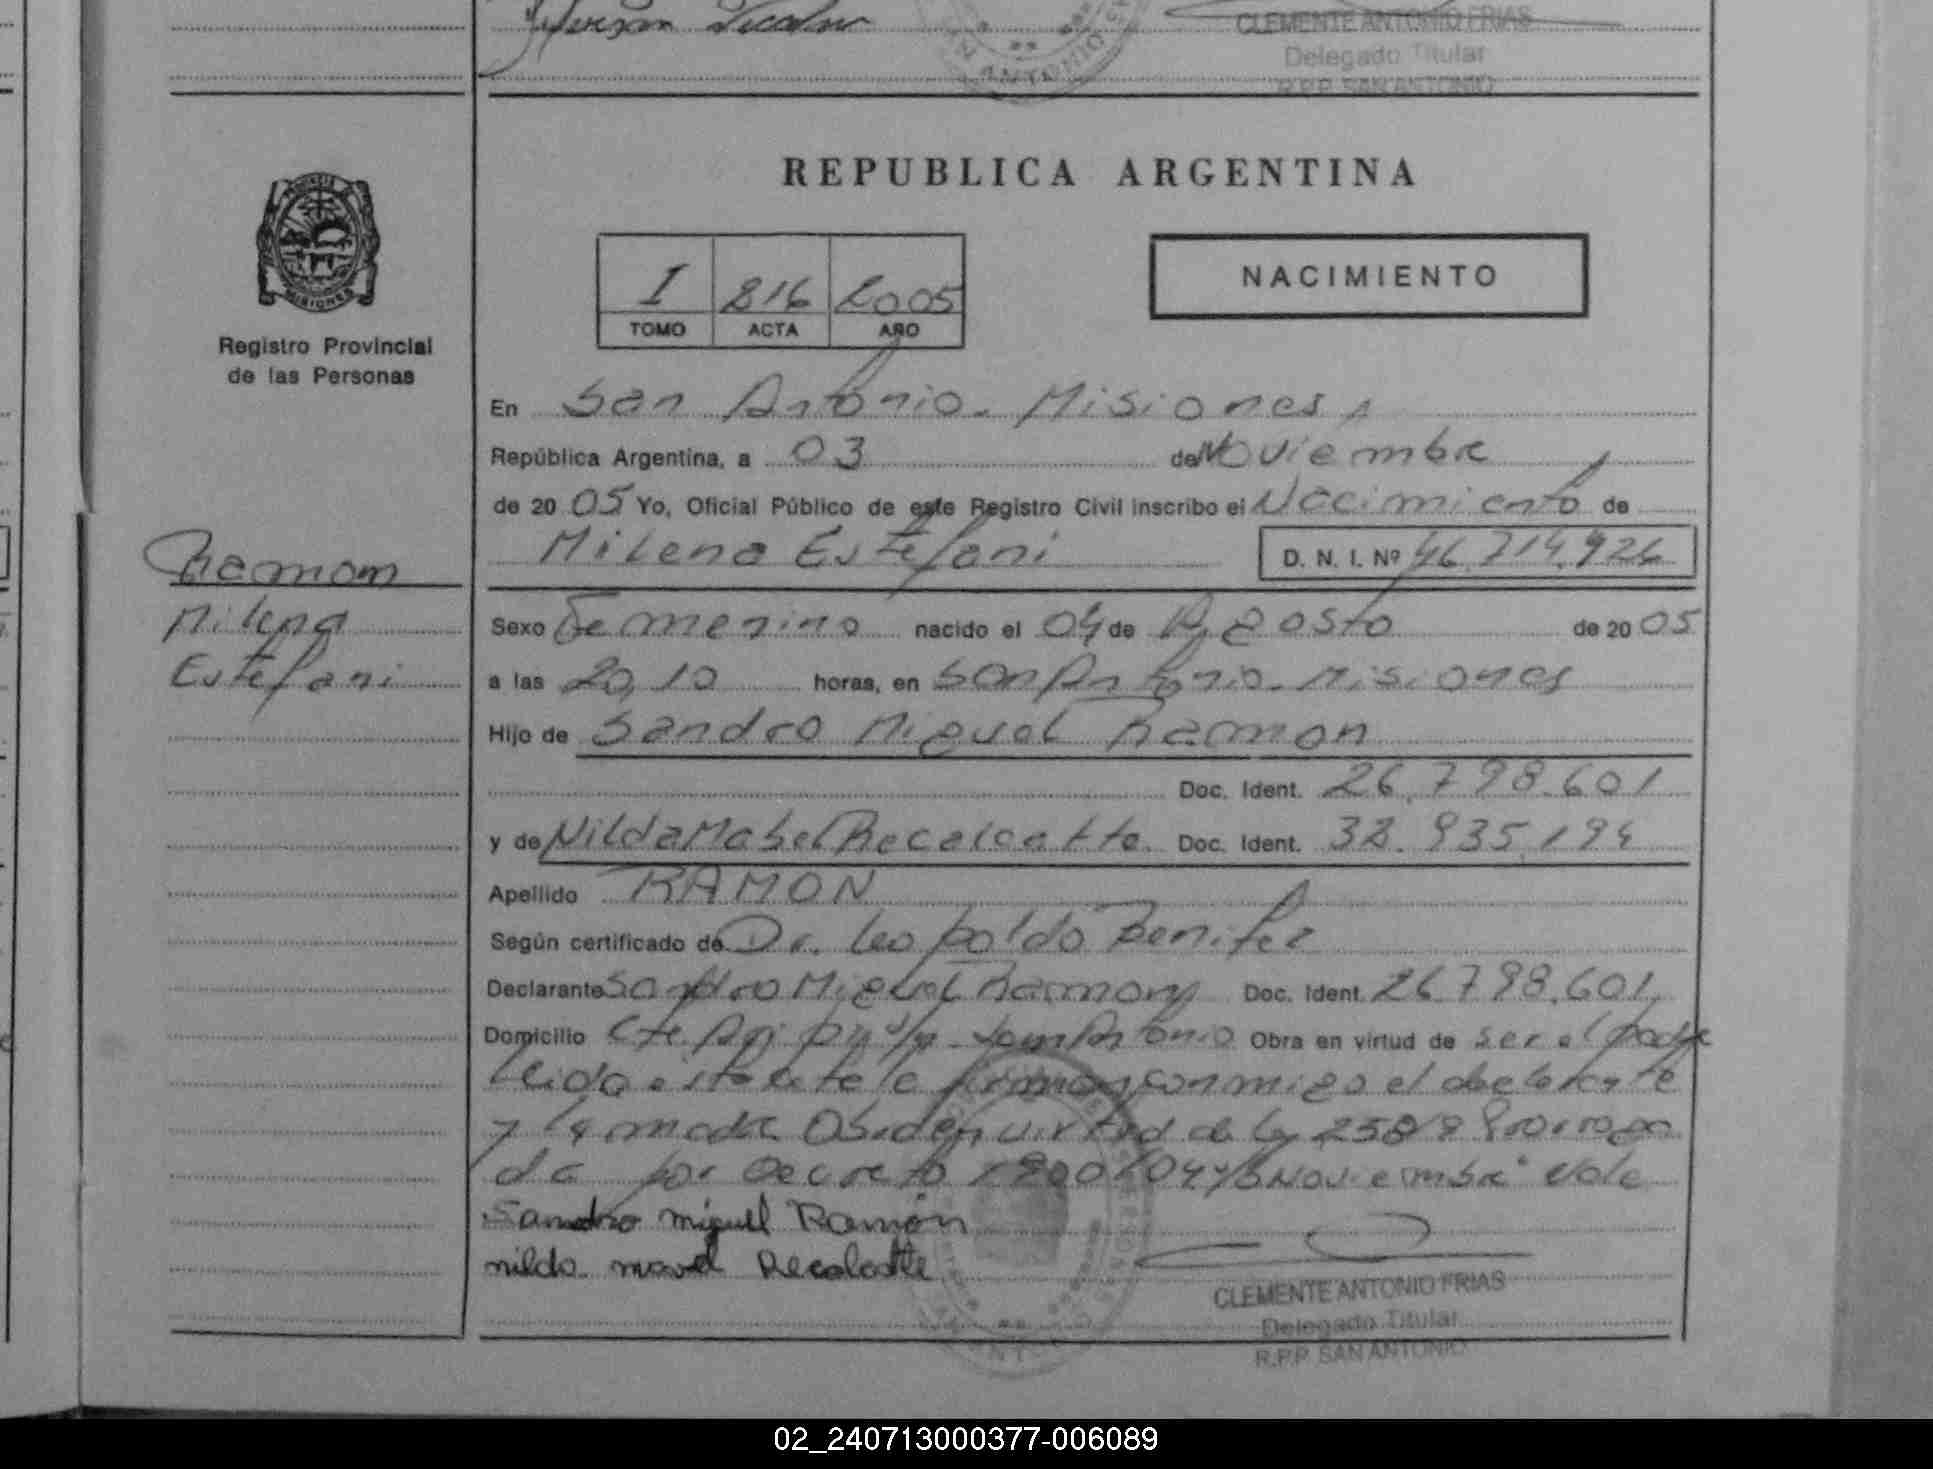 CLEMENTE ANTONIO FRIAS
Delegado Titular
R.P.P. SAN ANTONIO
ANTONIO
REPUBLICA ARGENTINA
PROVINCIA DE
MISIONES
Registro Provincial
de las Personas
I 216 2005
TOMO ACTA AÑO
NACIMIENTO
En San Antonio - Misiones,
República Argentina, a 03 de Noviembre
de 20 05 Yo, Oficial Público de este Registro Civil inscribo el Nacimiento de
Milena Estefani D. N. I. Nº 46.714.926
Ramon
Milena
Estefani
Sexo Femenino nacido el 04 de Agosto de 20 05
a las 20,10 horas, en San Antonio - Misiones
Hijo de Sandro Miguel Ramon
Doc. Ident. 26.798.601
y de Nilda Mabel Recalcatte Doc. Ident. 38.935.194
Apellido RAMON
Según certificado de Dr. Leopoldo Benitez
Declarante Sandro Miguel Ramon Doc. Ident. 26.798.601
Domicilio San Antonio Obra en virtud de ser el padre
Leida esta acta la firman conmigo el declarante
y la madre
da por Decreto Noviembre Vale
Sandro miguell Ramón
nilda mavel Recalcatte
CLEMENTE ANTONIO FRIAS
Delegado Titular
R.P.P. SAN ANTONIO
02_240713000377-006089